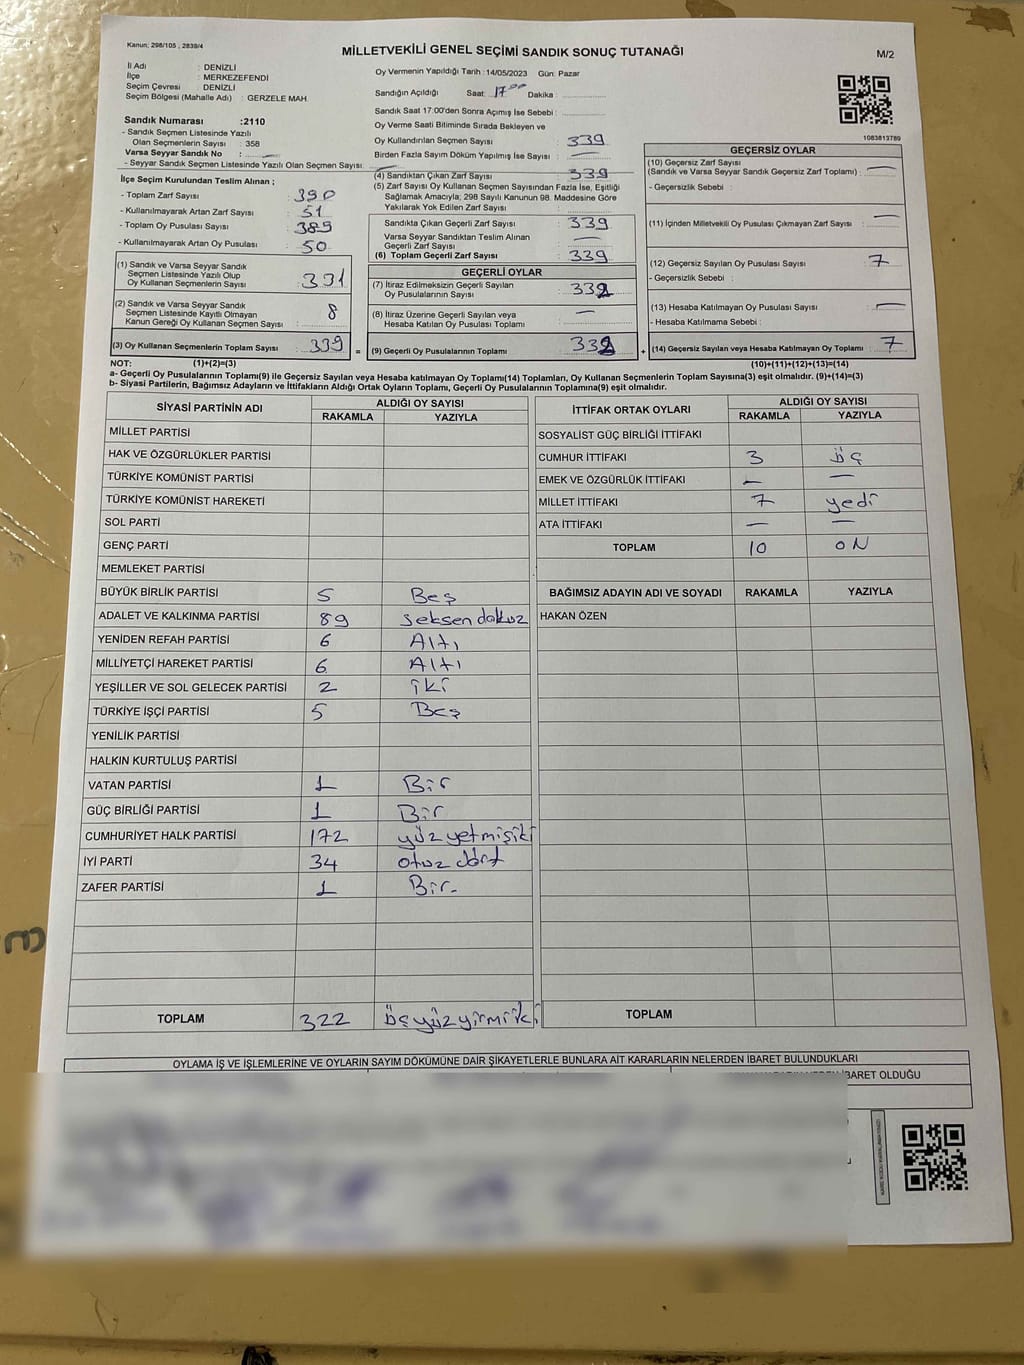 Kanun; 298/105 , 2839/4
MİLLETVEKİLİ GENEL SEÇİMİ SANDIK SONUÇ TUTANAĞI
M/2
İl Adı : DENİZLİ
İlçe : MERKEZEFENDİ
Seçim Çevresi : DENİZLİ
Seçim Bölgesi (Mahalle Adı) : GERZELE MAH.
Sandık Numarası :2110
- Sandık Seçmen Listesinde Yazılı
Olan Seçmenlerin Sayısı : 358
Varsa Seyyar Sandık No :
- Seyyar Sandık Seçmen Listesinde Yazılı Olan Seçmen Sayısı:
Oy Vermenin Yapıldığı Tarih :14/05/2023 Gün: Pazar
Sandığın Açıldığı Saat: 17 00 Dakika :
Sandık Saat 17:00'den Sonra Açımış İse Sebebi :
Oy Verme Saati Bitiminde Sırada Bekleyen ve
Oy Kullandırılan Seçmen Sayısı : 339
Birden Fazla Sayım Döküm Yapılmış İse Sayısı : —
1083813789
İlçe Seçim Kurulundan Teslim Alınan ;
- Toplam Zarf Sayısı : 390
- Kullanılmayarak Artan Zarf Sayısı : 51
- Toplam Oy Pusulası Sayısı : 389
- Kullanılmayarak Artan Oy Pusulası : 50
(1) Sandık ve Varsa Seyyar Sandık
Seçmen Listesinde Yazılı Olup
Oy Kullanan Seçmenlerin Sayısı : 331
(2) Sandık ve Varsa Seyyar Sandık
Seçmen Listesinde Kayıtlı Olmayan
Kanun Gereği Oy Kullanan Seçmen Sayısı : 8
(3) Oy Kullanan Seçmenlerin Toplam Sayısı : 339
(4) Sandıktan Çıkan Zarf Sayısı : 339
(5) Zarf Sayısı Oy Kullanan Seçmen Sayısından Fazla İse, Eşitliği
Sağlamak Amacıyla; 298 Sayılı Kanunun 98. Maddesine Göre
Yakılarak Yok Edilen Zarf Sayısı :
Sandıkta Çıkan Geçerli Zarf Sayısı : 339
Varsa Seyyar Sandıktan Teslim Alınan
Geçerli Zarf Sayısı : —
(6) Toplam Geçerli Zarf Sayısı : 339
GEÇERLİ OYLAR
(7) İtiraz Edilmeksizin Geçerli Sayılan
Oy Pusulalarının Sayısı : 332
(8) İtiraz Üzerine Geçerli Sayılan veya
Hesaba Katılan Oy Pusulası Toplamı : —
= (9) Geçerli Oy Pusulalarının Toplamı : 332
GEÇERSİZ OYLAR
(10) Geçersiz Zarf Sayısı
(Sandık ve Varsa Seyyar Sandık Geçersiz Zarf Toplamı) : —
- Geçersizlik Sebebi :
(11) İçinden Milletvekili Oy Pusulası Çıkmayan Zarf Sayısı : —
(12) Geçersiz Sayılan Oy Pusulası Sayısı : 7
- Geçersizlik Sebebi :
(13) Hesaba Katılmayan Oy Pusulası Sayısı : —
- Hesaba Katılmama Sebebi :
+ (14) Geçersiz Sayılan veya Hesaba Katılmayan Oy Toplamı : 7
NOT: (1)+(2)=(3) (10)+(11)+(12)+(13)=(14)
a- Geçerli Oy Pusulalarının Toplamı(9) ile Geçersiz Sayılan veya Hesaba Katılmayan Oy Toplamı(14) Toplamları, Oy Kullanan Seçmenlerin Toplam Sayısına(3) eşit olmalıdır. (9)+(14)=(3)
b- Siyasi Partilerin, Bağımsız Adayların ve İttifakların Aldığı Ortak Oyların Toplamı, Geçerli Oy Pusulalarının Toplamına(9) eşit olmalıdır.
SİYASİ PARTİNİN ADI ALDIĞI OY SAYISI
RAKAMLA YAZIYLA
MİLLET PARTİSİ
HAK VE ÖZGÜRLÜKLER PARTİSİ
TÜRKİYE KOMÜNİST PARTİSİ
TÜRKİYE KOMÜNİST HAREKETİ
SOL PARTİ
GENÇ PARTİ
MEMLEKET PARTİSİ
BÜYÜK BİRLİK PARTİSİ 5 Beş
ADALET VE KALKINMA PARTİSİ 89 seksen dokuz
YENİDEN REFAH PARTİSİ 6 Altı
MİLLİYETÇİ HAREKET PARTİSİ 6 Altı
YEŞİLLER VE SOL GELECEK PARTİSİ 2 iki
TÜRKİYE İŞÇİ PARTİSİ 5 Beş
YENİLİK PARTİSİ
HALKIN KURTULUŞ PARTİSİ
VATAN PARTİSİ 1 Bir
GÜÇ BİRLİĞİ PARTİSİ 1 Bir
CUMHURİYET HALK PARTİSİ 172 yüz yetmişiki
İYİ PARTİ 34 otuz dört
ZAFER PARTİSİ 1 Bir.
TOPLAM 322 üçyüzyirmiiki
İTTİFAK ORTAK OYLARI ALDIĞI OY SAYISI
RAKAMLA YAZIYLA
SOSYALİST GÜÇ BİRLİĞİ İTTİFAKI
CUMHUR İTTİFAKI 3 üç
EMEK VE ÖZGÜRLÜK İTTİFAKI — —
MİLLET İTTİFAKI 7 yedi
ATA İTTİFAKI — —
TOPLAM 10 ON
BAĞIMSIZ ADAYIN ADI VE SOYADI RAKAMLA YAZIYLA
HAKAN ÖZEN
TOPLAM
OYLAMA İŞ VE İŞLEMLERİNE VE OYLARIN SAYIM DÖKÜMÜNE DAİR ŞİKAYETLERLE BUNLARA AİT KARARLARIN NELERDEN İBARET BULUNDUKLARI
İBARET OLDUĞU